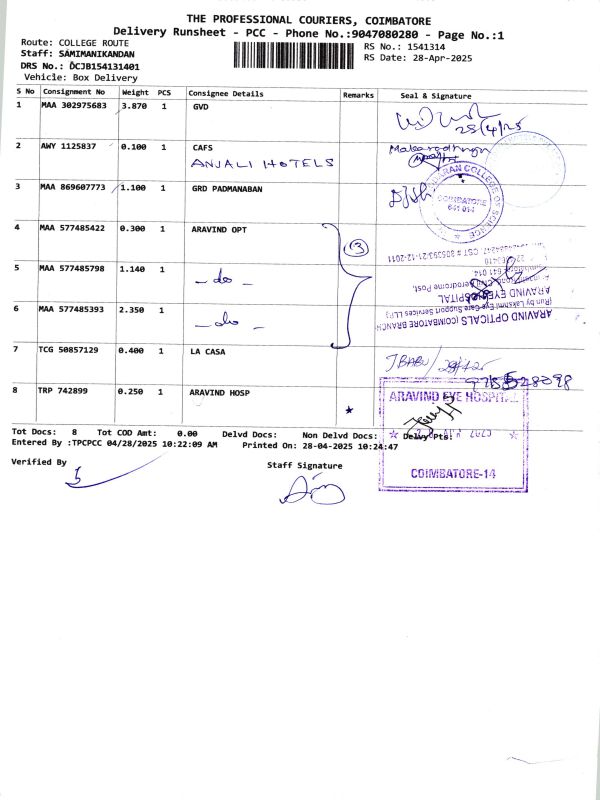 THE PROFESSIONAL COURIERS, COIMBATORE
Delivery Runsheet - PCC - Phone No.:9047080280 - Page No.:1
Route: COLLEGE ROUTE
RS No.: 1541314
Staff: SAMIMANIKANDAN
RS Date: 28-Apr-2025
DRS No.: DCJB154131401
Vehicle: Box Delivery
S No Consignment No Weight PCS Consignee Details Remarks Seal & Signature
1 MAA 302975683 3.870 1 GVD
28/4/25
2 AWY 1125837 0.100 1 CAFS
ANJALI HOTELS
3 MAA 869607773 1.100 1 GRD PADMANABAN
COLLEGE OF SCIENCE
COIMBATORE
641 014
4 MAA 577485422 0.300 1 ARAVIND OPT
3
5 MAA 577485798 1.140 1
- do -
6 MAA 577485393 2.350 1
- do -
ARAVIND OPTICALS (COIMBATORE BRANCH
(Run by Lakshmi Eye Care Support Services LLP)
ARAVIND EYE HOSPITAL
7 TCG 50857129 0.400 1 LA CASA
J BABU
8 TRP 742899 0.250 1 ARAVIND HOSP
ARAVIND EYE HOSPITAL
COIMBATORE-14
Tot Docs: 8 Tot COD Amt: 0.00 Delvd Docs: Non Delvd Docs: Delvy Pts:
Entered By :TPCPCC 04/28/2025 10:22:09 AM Printed On: 28-04-2025 10:24:47
Verified By
Staff Signature